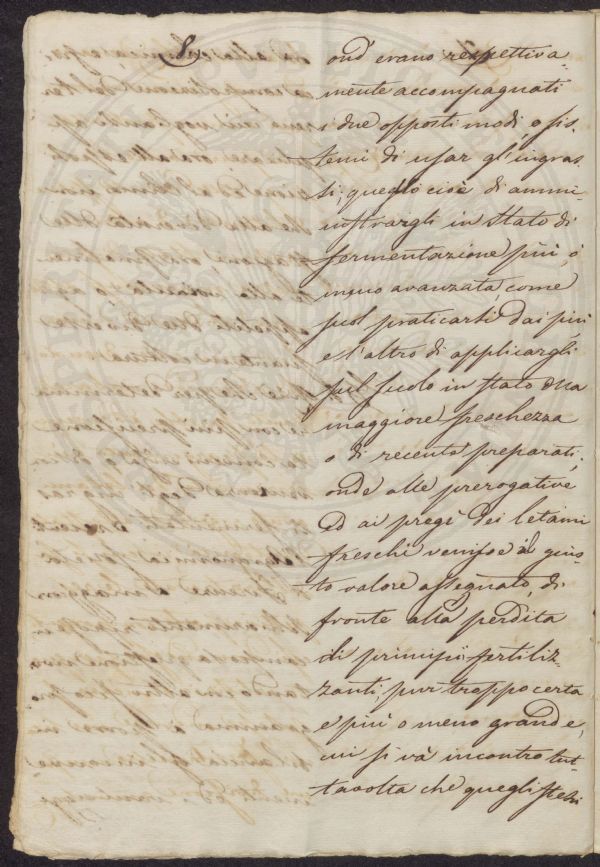 8.
ond'erano respettiva-
mente accompagnati
i due opposti modi, o sis-
temi di usar gl'ingras-
si, quello cioè di ammi-
nistrargli in stato di
fermentazione più, o
meno avanzata, come
suol praticarsi dai più
e l'altro di applicargli
sul suolo in stato della
maggiore freschezza
o di recente preparati;
onde alle prerogative
ed ai pregi dei letami
freschi venisse il gius-
to valore assegnato, di
fronte alla perdita
di principii fertiliz-
zanti, pur troppo certa
e più o meno grande,
cui si và incontro tut-
tavolta che quegli stessi